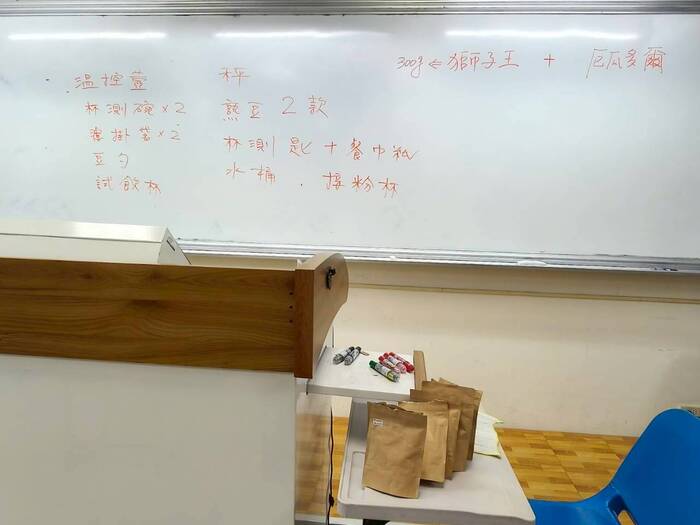 温控壺
杯測碗×2
濾掛 ×2
豆勺
試飲杯
秤
熟豆2款
杯測匙+餐巾紙
水桶、接粉杯
300g ⇐ 獅子王 + 厄瓜多爾